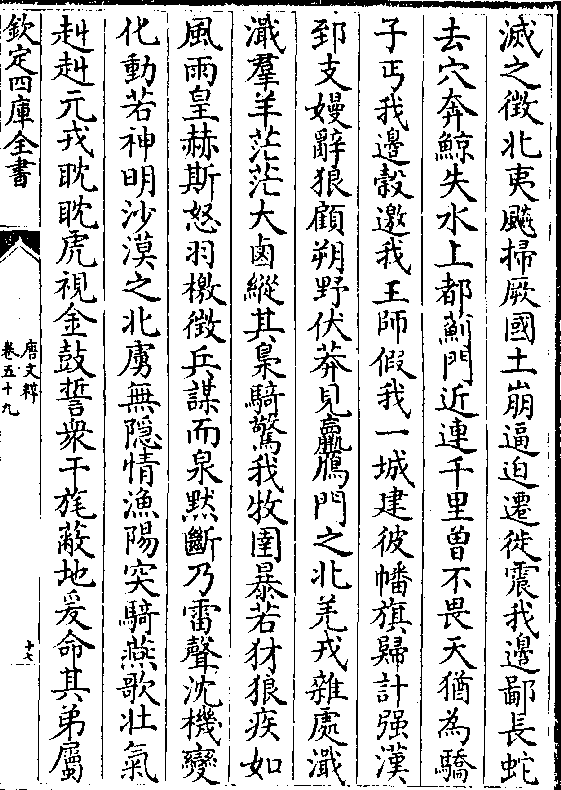 滅之徵北夷飈掃厥國土崩逼迫遷徙震我邊鄙長蛇
去穴奔鯨失水上都薊門近連千里曽不畏天猶為驕
子丐我邊糓邀我王師假我一城建彼幡旗歸計强漢
郅支嫚辭狼顧朔野伏莽見羸鴈門之北羌戎雜處濈
濈羣羊茫茫大鹵縱其梟騎驚我牧圉暴若豺狼疾如
風雨皇赫斯怒羽檄徵兵謀而泉默斷乃雷聲沈機變
化動若神明沙漠之北虜無隠情漁陽突騎燕歌壯氣
赳赳元戎眈眈虎視金鼓誓衆干旄蔽地爰命其弟屬
欽定四庫全書
唐文粹
卷五十九
十七